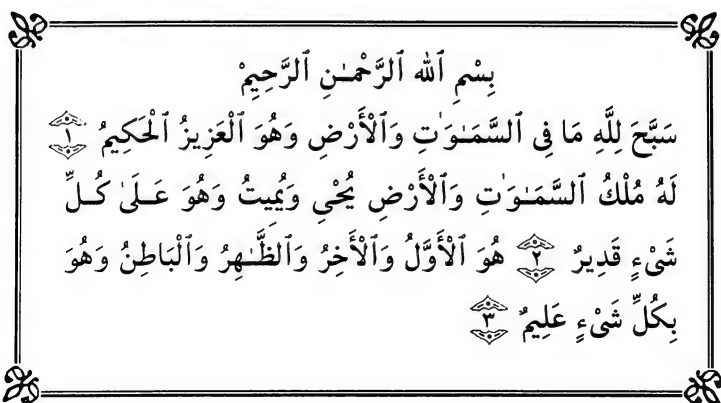 بِسْمِ ٱللهِ ٱلرَّحْمَـٰنِ ٱلرَّحِيمِْ
سَبَّحَ لِلَّهِ مَا فِى ٱلسَّمَـٰوَٰتِ وَٱلْأَرْضِ وَهُوَ ٱلْعَزِيزُ ٱلْحَكِيمُ ١
لَهُ مُلْكُ ٱلسَّمَـٰوَٰتِ وَٱلْأَرْضِ يُحْىِ وَيُمِيتُ وَهُوَ عَـلَىٰ كُـلِّ
شَىْءٍ قَدِيرٌ ٢ هُوَ ٱلْأَوَّلُ وَٱلْأَخِرُ وَٱلظَّـٰهِرُ وَٱلْبَاطِنُ وَهُوَ
بِكُلِّ شَىْءٍ عَلِيمٌ ٣